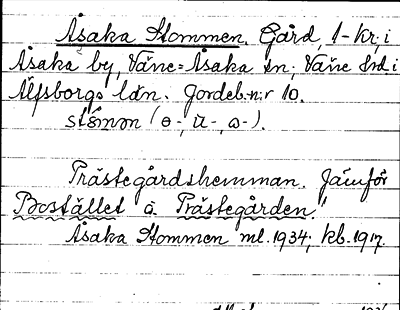 Åsaka Stommen. Gård, 1-kr; i
Åsaka by, Väne=Åsaka sn; Väne hrd. i
Älfsborgs län. Jordeb.n:r 10.
stòmən (ə-, u-, ω-).
Prästegårdshemman. Jämför
Bostället o. Prästegården!
Åsaka Stommen ml. 1934; kb. 1917.